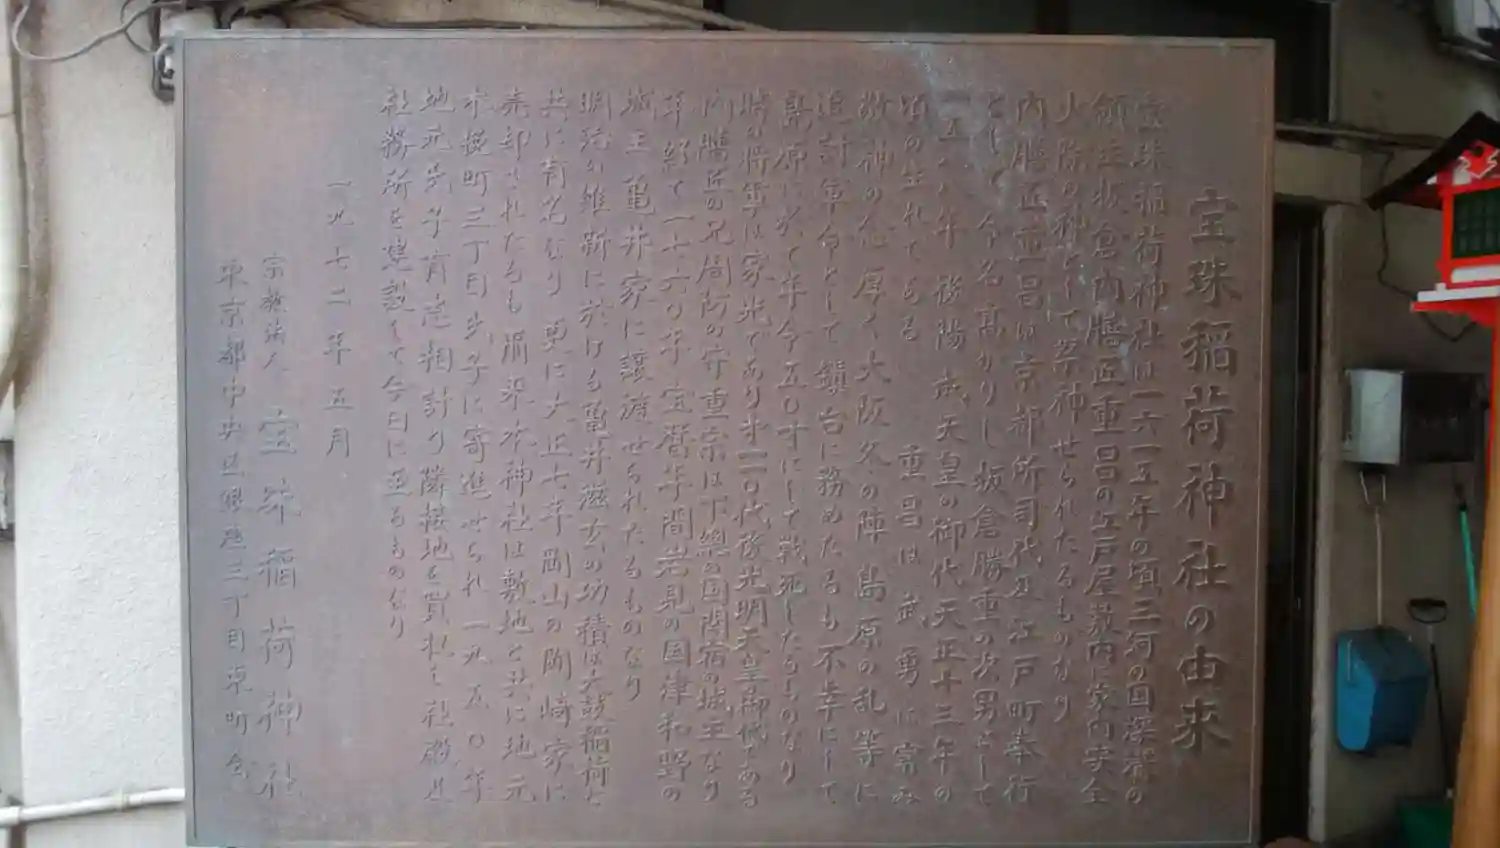 宝珠稲荷神社の由来
宝珠稲荷神社は一六一五年の頃、三河の国深溝の
領主板倉内膳正重昌の江戸屋敷内に家内安全
火除の神として祭神せられたるものなり
内膳正重昌は京都所司代及江戸町奉行
として令名高かりし板倉勝重の次男として
一五八八年後陽成天皇の御代天正十三年の
頃の生れである 重昌は武勇に富み
敬神の念厚く大阪冬の陣島原の乱等に
追討軍命として鎮台に務めたるも不幸にして
島原に於て年令五〇才にして戦死したるものなり
時の将軍は家光であり才一一〇代後光明天皇御代である
内膳正の兄周防の守重宗は下總の国関宿の城主なり
年経て一七六〇年宝暦年間岩見の国津和野の
城主亀井家に譲渡せられたるものなり
明治の維新に於ける亀井茲玄の功積は太鼓稲荷と
共に有名なり 更に大正七年岡山の岡崎家に
売却されたるも爾来本神社は敷地と共に地元
木挽町三丁目氏子に寄進せられ一九五〇年
地元氏子有志相計り隣接地を買収し社殿及
社務所を建設して今日に至るものなり
一九七二年五月
宗教法人 宝珠稲荷神社
東京都中央区銀座三丁目東町会